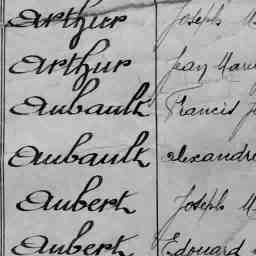 Arthur Joseph M
Arthur Jean Marie
Aubault Francis J
Aubault alexandre
Aubert Joseph M
Aubert Edouard